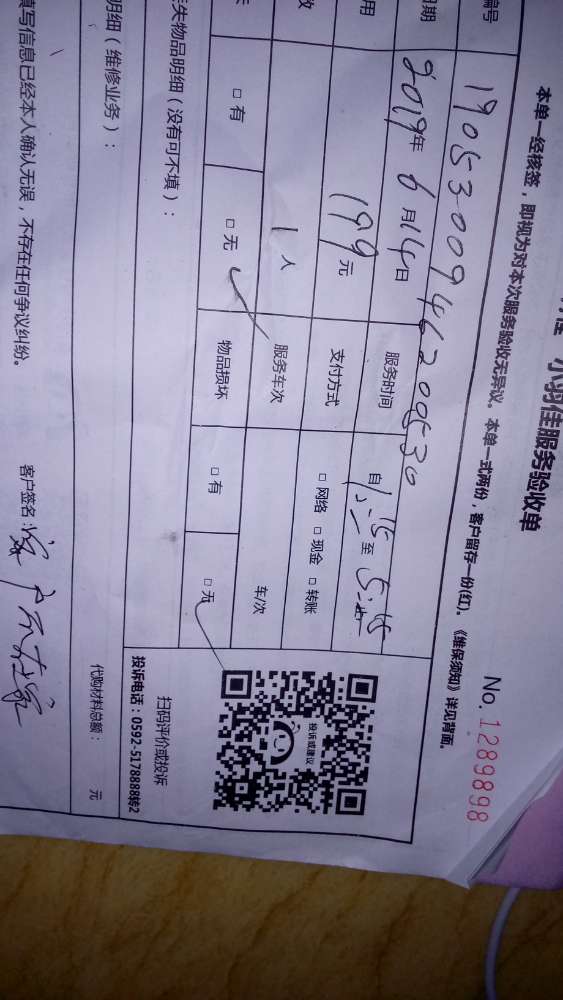 小羽佳服务验收单
No. 1289898
本单一经核签，即视为对本次服务验收无异议。本单一式两份，客户留存一份(红)。《维保须知》详见背面。
编号 1905300946200530
日期 2019年6月14日 服务时间 自1:15至5:15
用 199元 支付方式 □网络 □现金 □转账
1人 服务车次 车/次
□有 □无 物品损坏 □有 □无
投诉或建议
扫码评价或投诉
投诉电话：0592-5178888转2
失物品明细（没有可不填）：
明细（维修业务）：
代购材料总额： 元
填写信息已经本人确认无误，不存在任何争议纠纷。
客户签名: 客户不在家